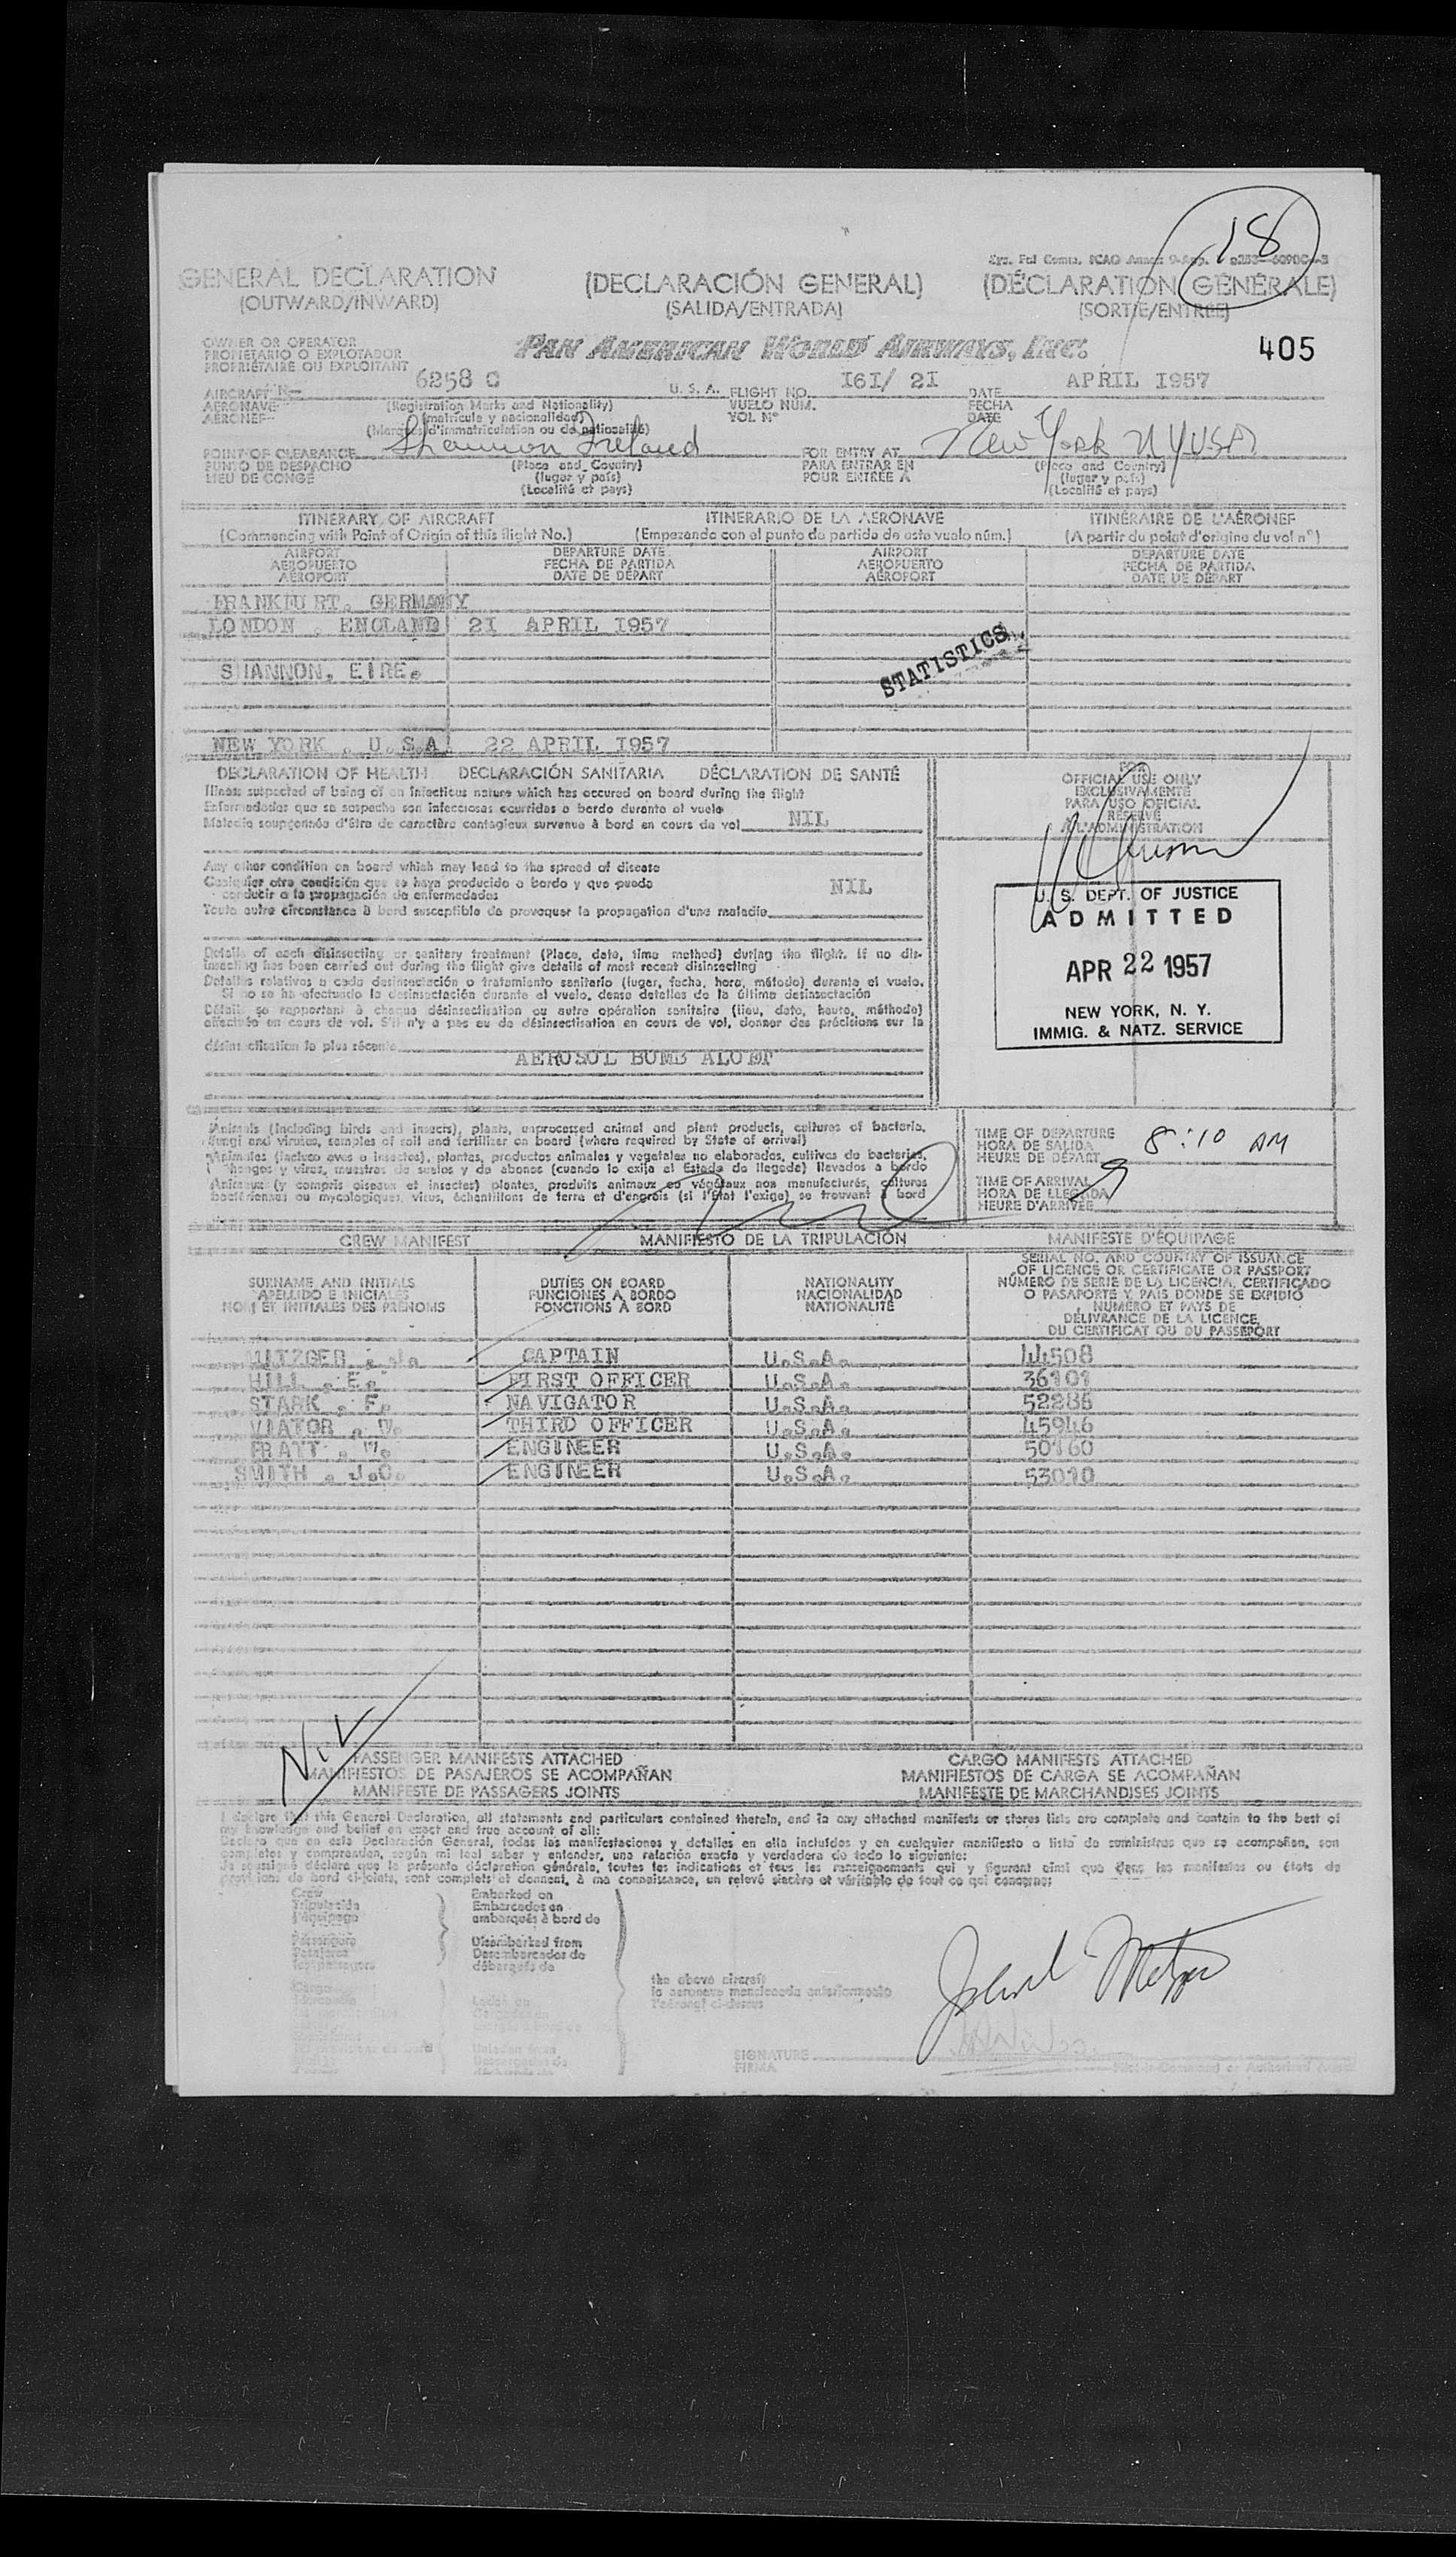 18
GENERAL DECLARATION (DECLARACIÓN GENERAL) (DÉCLARATION GÉNÉRALE)
(OUTWARD/INWARD) (SALIDA/ENTRADA) (SORTIE/ENTRÉE)
OWNER OR OPERATOR
PROPIETARIO O EXPLOTADOR
PROPRIÉTAIRE OU EXPLOITANT
PAN AMERICAN WORLD AIRWAYS, INC. 405
AIRCRAFT N- 6258 C U. S. A. FLIGHT NO. I6I/ 2I DATE APRIL I957
AERONAVE (Registration Marks and Nationality) VUELO NÚM. FECHA
AÉRONEF (matrícula y nacionalidad) VOL Nº DATE
(Marques d'immatriculation ou de nationalité)
POINT OF CLEARANCE Shannon Ireland FOR ENTRY AT New York N Y USA
PUNTO DE DESPACHO (Place and Country) PARA ENTRAR EN (Place and Country)
LIEU DE CONGÉ (lugar y país) POUR ENTRÉE À (lugar y país)
(Localité et pays) (Localité et pays)
ITINERARY OF AIRCRAFT ITINERARIO DE LA AERONAVE ITINÉRAIRE DE L'AÉRONEF
(Commencing with Point of Origin of this flight No.) (Empezando con el punto de partida de este vuelo núm.) (A partir du point d'origine du vol nº)
AIRPORT DEPARTURE DATE AIRPORT DEPARTURE DATE
AEROPUERTO FECHA DE PARTIDA AEROPUERTO FECHA DE PARTIDA
AÉROPORT DATE DE DÉPART AÉROPORT DATE DE DÉPART
FRANKFURT, GERMANY
LONDON , ENGLAND 2I APRIL I957
STATISTICS
SHANNON, EIRE.
NEW YORK , U.S.A. 22 APRIL I957
DECLARATION OF HEALTH DECLARACIÓN SANITARIA DÉCLARATION DE SANTÉ
Illness suspected of being of an infectious nature which has occured on board during the flight
Enfermedades que se sospecha son infecciosas ocurridas a bordo durante el vuelo
Maladie soupçonnée d'être de caractère contagieux survenue à bord en cours de vol NIL
Any other condition on board which may lead to the spread of disease
Cualquier otra condición que se haya producido a bordo y que pueda
conducir a la propagación de enfermedades NIL
Toute autre circonstance à bord susceptible de provoquer la propagation d'une maladie
Details of each disinsecting or sanitary treatment (Place, date, time method) during the flight. If no dis-
insecting has been carried out during the flight give details of most recent disinsecting
Detalles relativos a cada desinsectación o tratamiento sanitario (lugar, fecha, hora, método) durante el vuelo.
Si no se ha efectuado la desinsectación durante el vuelo, dense detalles de la última desinsectación
Détails se rapportant à chaque désinsectisation ou autre opération sanitaire (lieu, date, heure, méthode)
effectuée en cours de vol. S'il n'y a pas eu de désinsectisation en cours de vol, donner des précisions sur la
désinsectisation la plus récente
AEROSOL BOMB
FOR
OFFICIAL USE ONLY
EXCLUSIVAMENTE
PARA USO OFICIAL
RÉSERVÉ
À L'ADMINISTRATION
U. S. DEPT. OF JUSTICE
ADMITTED
APR 22 1957
NEW YORK, N. Y.
IMMIG. & NATZ. SERVICE
Animals (including birds and insects), plants, unprocessed animal and plant products, cultures of bacteria,
fungi and viruses, samples of soil and fertilizer on board (where required by State of arrival)
Animales (incluso aves o insectos), plantas, productos animales y vegetales no elaborados, cultivos de bacterias,
hongos y virus, muestras de suelos y de abonos (cuando lo exija el Estado de llegada) llevados a bordo
Animaux (y compris oiseaux et insectes) plantes, produits animaux ou végétaux non manufacturés, cultures
bactériennes ou mycologiques, virus, échantillons de terre et d'engrais (si l'État l'exige) se trouvant à bord
TIME OF DEPARTURE
HORA DE SALIDA 8:10 AM
HEURE DE DÉPART
TIME OF ARRIVAL
HORA DE LLEGADA
HEURE D'ARRIVÉE
CREW MANIFEST MANIFIESTO DE LA TRIPULACIÓN MANIFESTE D'ÉQUIPAGE
SURNAME AND INITIALS DUTIES ON BOARD NATIONALITY
APELLIDO E INICIALES FUNCIONES A BORDO NACIONALIDAD
NOM ET INITIALES DES PRÉNOMS FONCTIONS À BORD NATIONALITÉ
SERIAL NO. AND COUNTRY OF ISSUANCE
OF LICENCE OR CERTIFICATE OR PASSPORT
NÚMERO DE SERIE DE LA LICENCIA, CERTIFICADO
O PASAPORTE Y PAÍS DONDE SE EXPIDIÓ
NUMÉRO ET PAYS DE
DÉLIVRANCE DE LA LICENCE,
DU CERTIFICAT OU DU PASSEPORT
METZGER , J. CAPTAIN U.S.A. 14508
HILL , E. FIRST OFFICER U.S.A. 36101
STARK , F. NAVIGATOR U.S.A. 52285
VIATOR , W. THIRD OFFICER U.S.A. 45946
PRATT , W. ENGINEER U.S.A. 50160
SMITH , J.C. ENGINEER U.S.A. 53010
NIL
PASSENGER MANIFESTS ATTACHED CARGO MANIFESTS ATTACHED
MANIFIESTOS DE PASAJEROS SE ACOMPAÑAN MANIFIESTOS DE CARGA SE ACOMPAÑAN
MANIFESTE DE PASSAGERS JOINTS MANIFESTE DE MARCHANDISES JOINTS
I declare that this General Declaration, all statements and particulars contained therein, and in any attached manifests or stores lists are complete and contain to the best of
my knowledge and belief an exact and true account of all:
Declaro que en esta Declaración General, todas las manifestaciones y detalles en ella incluídos y en cualquier manifiesto o lista de suministros que se acompañen, son
completos y comprenden, según mi leal saber y entender, una relación exacta y verdadera de todo lo siguiente:
Je soussigné déclare que la présente déclaration générale, toutes les indications et tous les renseignements qui y figurent ainsi que dans les manifestes ou états de
provisions de bord ci-joints, sont complets et donnent, à ma connaissance, un relevé sincère et véritable de tout ce qui concerne:
Crew Embarked on
Tripulación Embarcados en
l'équipage embarqués à bord de
Passengers Disembarked from
Pasajeros Desembarcados de
les passagers débarqués de
the above aircraft
la aeronave mencionada anteriormente
l'aéronef ci-dessus
Cargo Laden on
Unladen from
Descargados de
SIGNATURE
FIRMA
Pilot-in-Command or Authorized Agent